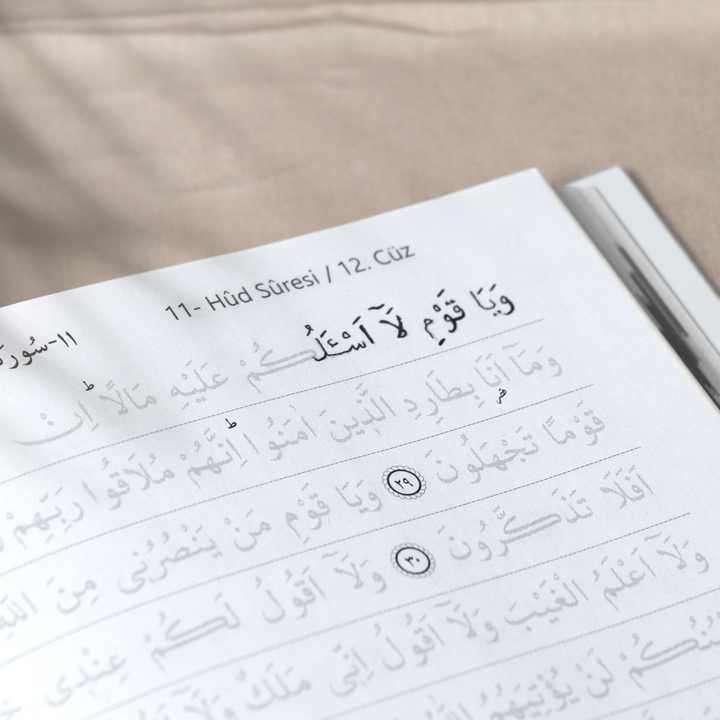 11- Hûd Sûresi / 12. Cüz
١١-سُورَة
وَيَا قَوْمِ لَٓا اَسْـَٔلُكُمْ عَلَيْهِ مَالًاۜ اِنْ
وَمَٓا اَنَا۬ بِطَارِدِ الَّذ۪ينَ اٰمَنُواۜ اِنَّهُمْ مُلَاقُوا رَبِّهِمْ
قَوْمًا تَجْهَلُونَ ﴿٢٩﴾ وَيَا قَوْمِ مَنْ يَنْصُرُن۪ي مِنَ
اَفَلَا تَذَكَّرُونَ ﴿٣٠﴾ وَلَٓا اَقُولُ لَكُمْ عِنْد۪ي
وَلَٓا اَعْلَمُ الْغَيْبَ وَلَٓا اَقُولُ اِنّ۪ي مَلَكٌ
لَنْ يُؤْتِيَهُمُ